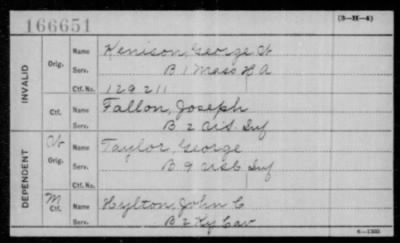 166651
(3-H-4)
INVALID
Orig.
Name Kenison, George W
Serv. B 1 Mass H A
Ctf. No. 129211
Ctf.
Name Fallon, Joseph
Serv. B 2 US Inf
DEPENDENT
Orig.
Name Taylor, George
Serv. B 9 USC Inf
Ctf. No.
M
Ctf.
Name Hylton, John C
Serv. B 2 Ky Cav